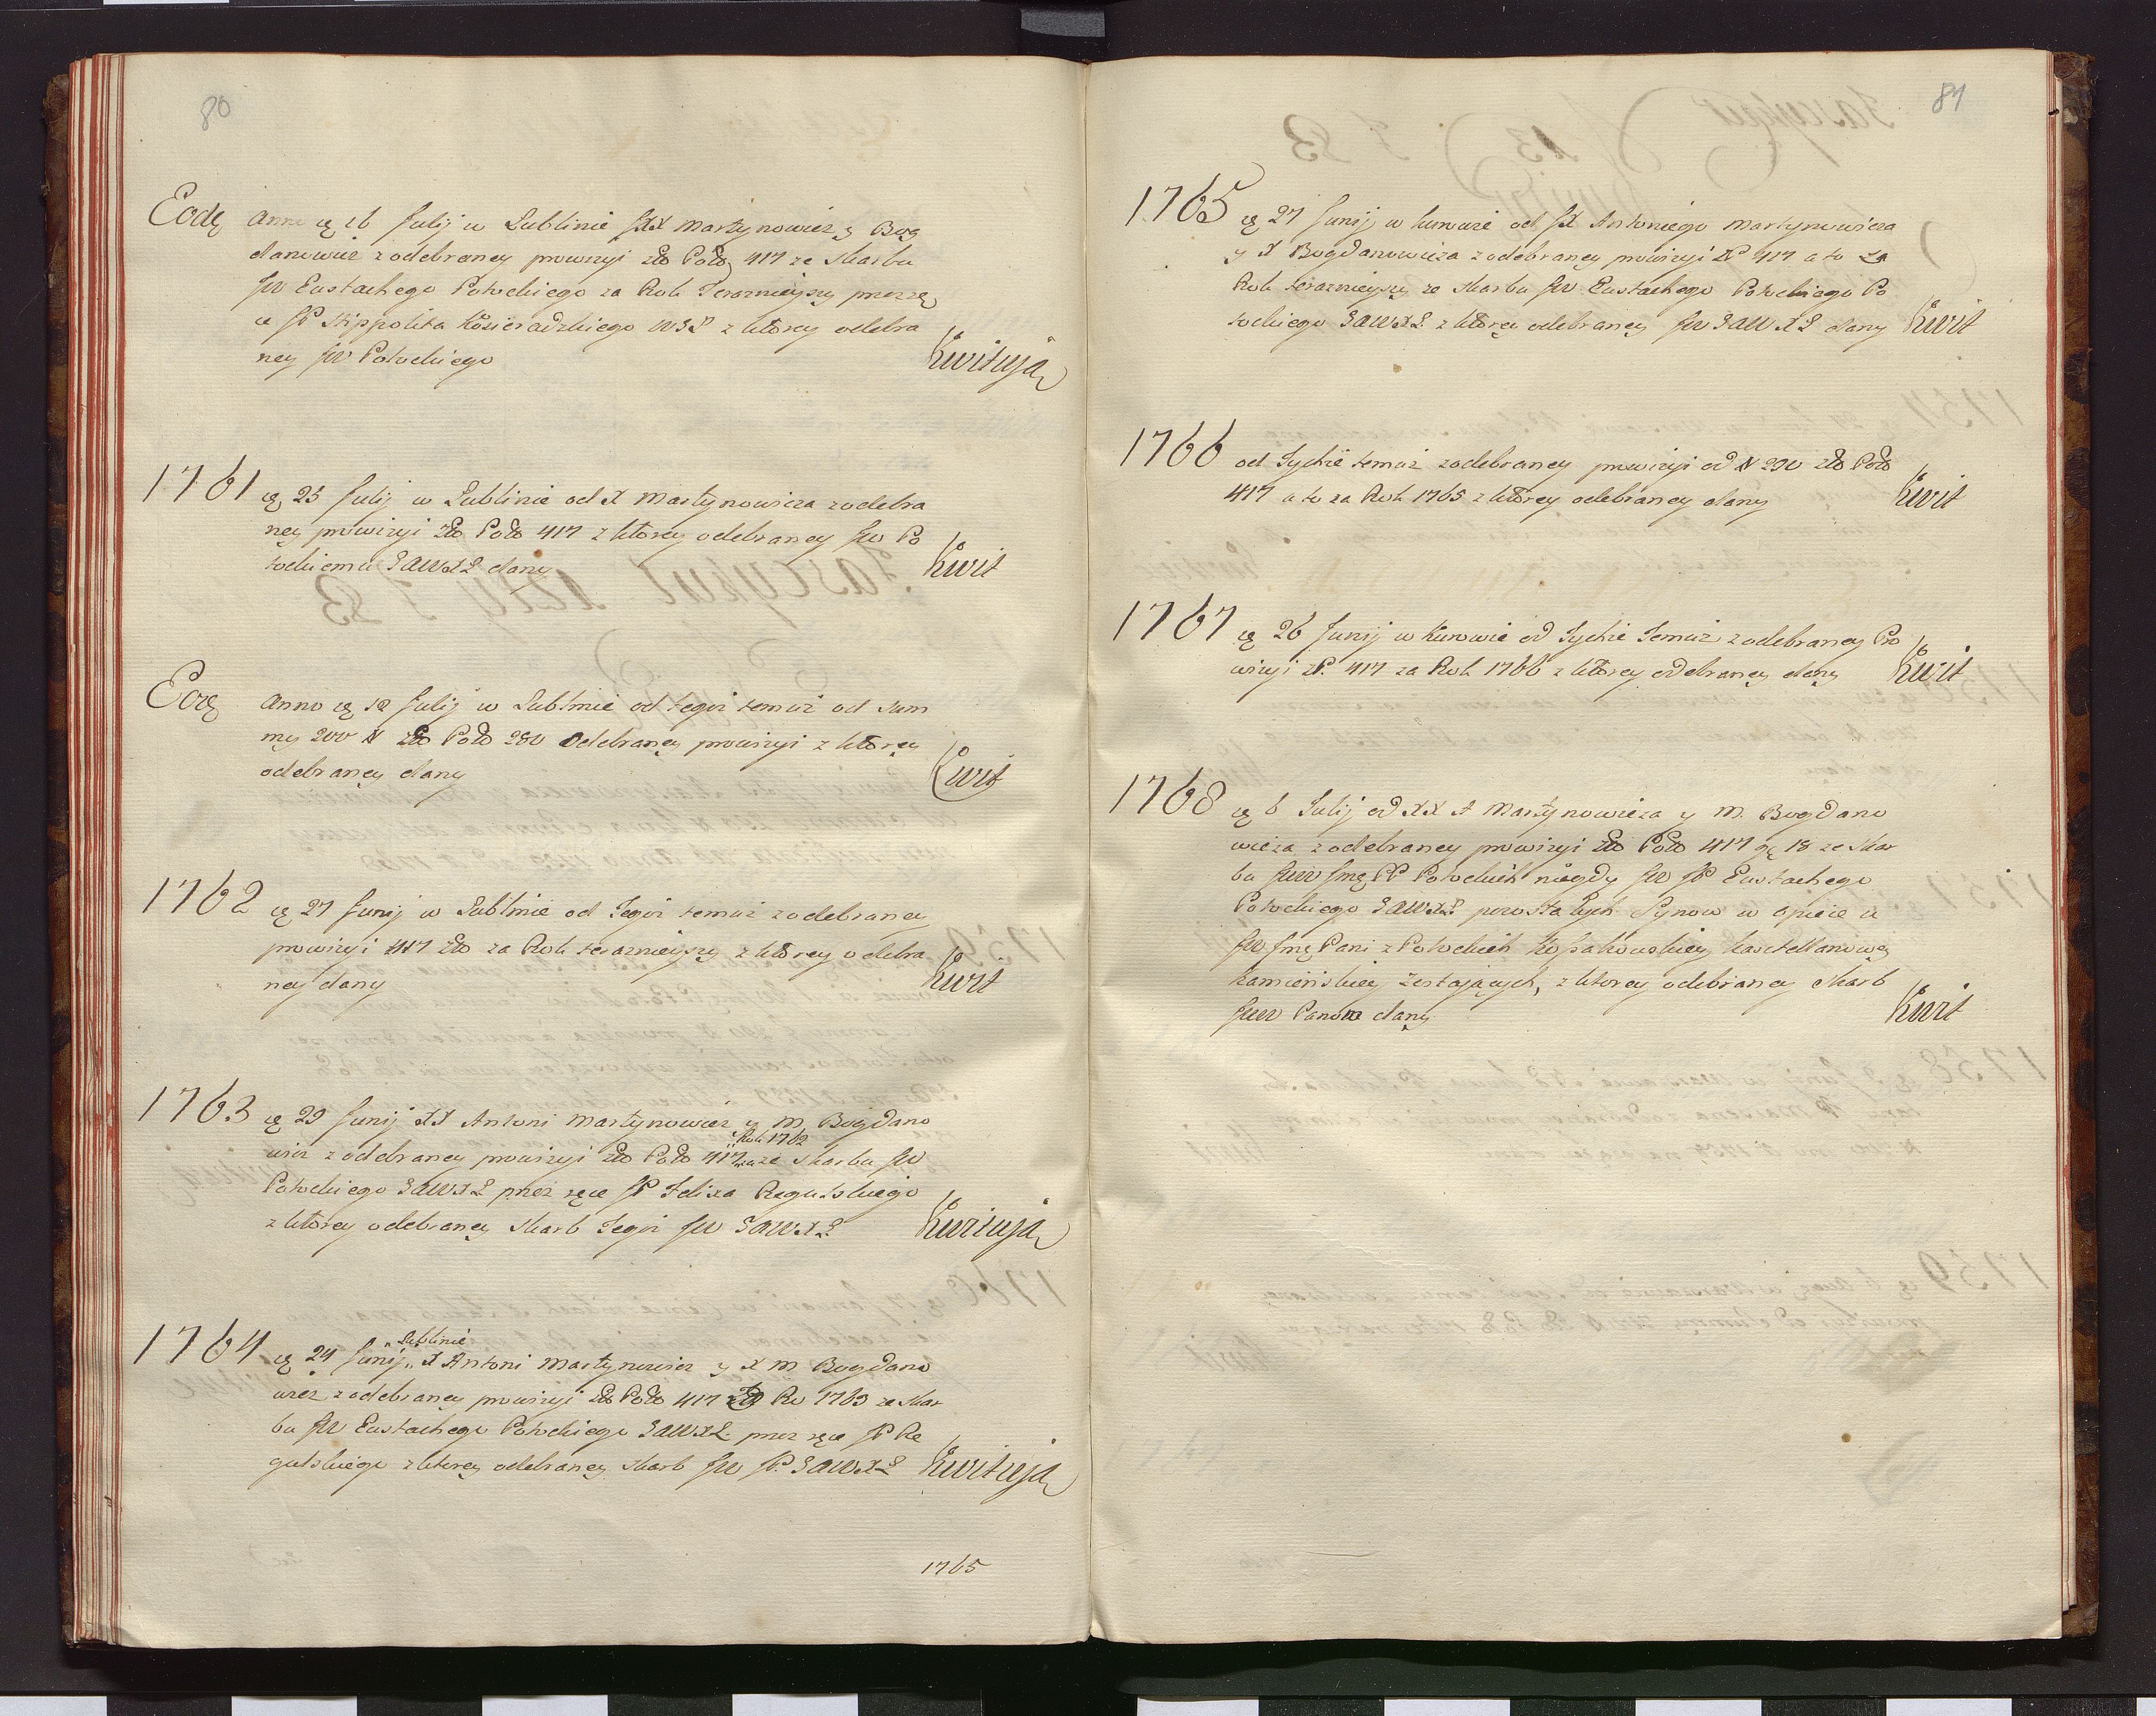 80
Eodę Anno ię 16 Julij w Lublinie JXX Martynowicz y Bog
danowicz z odebraney prowizyi zło Polo 417 ze Skarbu
JW Eustachego Potockiego za Rok Terazniejszy przez rę
ce JP Hippolita Kosieradzkiego z ktorey odebra
ney JW Potockiego Kwitują
1761 ię 23 Julij w Lublinie od X Martynowicza z odebra
ney prowizyi zło Polo 417 z ktorey odebraney JW Po
tockiemu GAWXL dany Kwit
Eorę Anno ię 12 Julij w Lublinie od tegoż temuż od Sum
my 200 # zło Polo 280 Odebraney prowizyi z ktorey
odebraney dany Kwit
1762 ię 27 Junij w Lublinie od Tegoż temuż z odebraney
prowizyi 417 zło za Rok terazniejszy z ktorey odebra
ney dany Kwit
1763 ię 29 Junij XX Antoni Martynowicz y M. Bogdano
wicz z odebraney prowizyi zło Polo 417 za Rok 1762 ze Skarbu JW
Potockiego GAWXL przez ręce JP Felixa Regulskiego
z ktorey odebraney Skarb Tegoż JW GAWXL Kwitują
1764 ię 24 Junij Lublinie X Antoni Martynowicz y X M Bogdano
wicz z odebraney prowizyi zło Polo 417 za Ro 1763 ze Skar
bu JW Eustachego Potockiego GAWXL przez ręce JP Re
gulskiego z ktorey odebraney Skarb JW JP. GAWXL Kwitują
1765
81
1765 ię 27 Junij w Kurowie od JX Antoniego Martynowicza
y X Bogdanowicza z odebraney prowizyi zP 417 a to za
Rok terazniejszy ze Skarbu JW Eustachego Potockiego Po
tockiego GAWXL z ktorey odebraney JW GAWXL dany Kwit
1766 od Tychże temuż z odebraney prowizyi od # 290 zło Polo
417 a to za Rok 1765 z ktorey odebraney dany Kwit
1767 ię 26 Junij w Kurowie od Tychże Temuż z odebraney Pro
wizyi zP. 417 za Rok 1766 z ktorey odebraney dany Kwit
1768 ię 6 Julij od XX A Martynowicza y M. Bogdano
wicza z odebraney prowizyi zło Polo 417 gę 18 ze Skar
bu JWW Jmę PP Potockich niegdy JW JP Eustachego
Potockiego GAWXL pozostałych Synow w opiece u
JW Jmę Pani z Potockich Kossakowskiey Kasztellanowey
Kamińskiey Zostających, z ktorey odebraney Skarb
JWW Panom dany Kwit